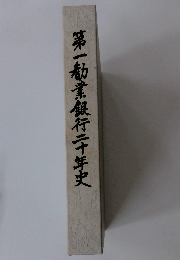 第一勧業銀行二十年史